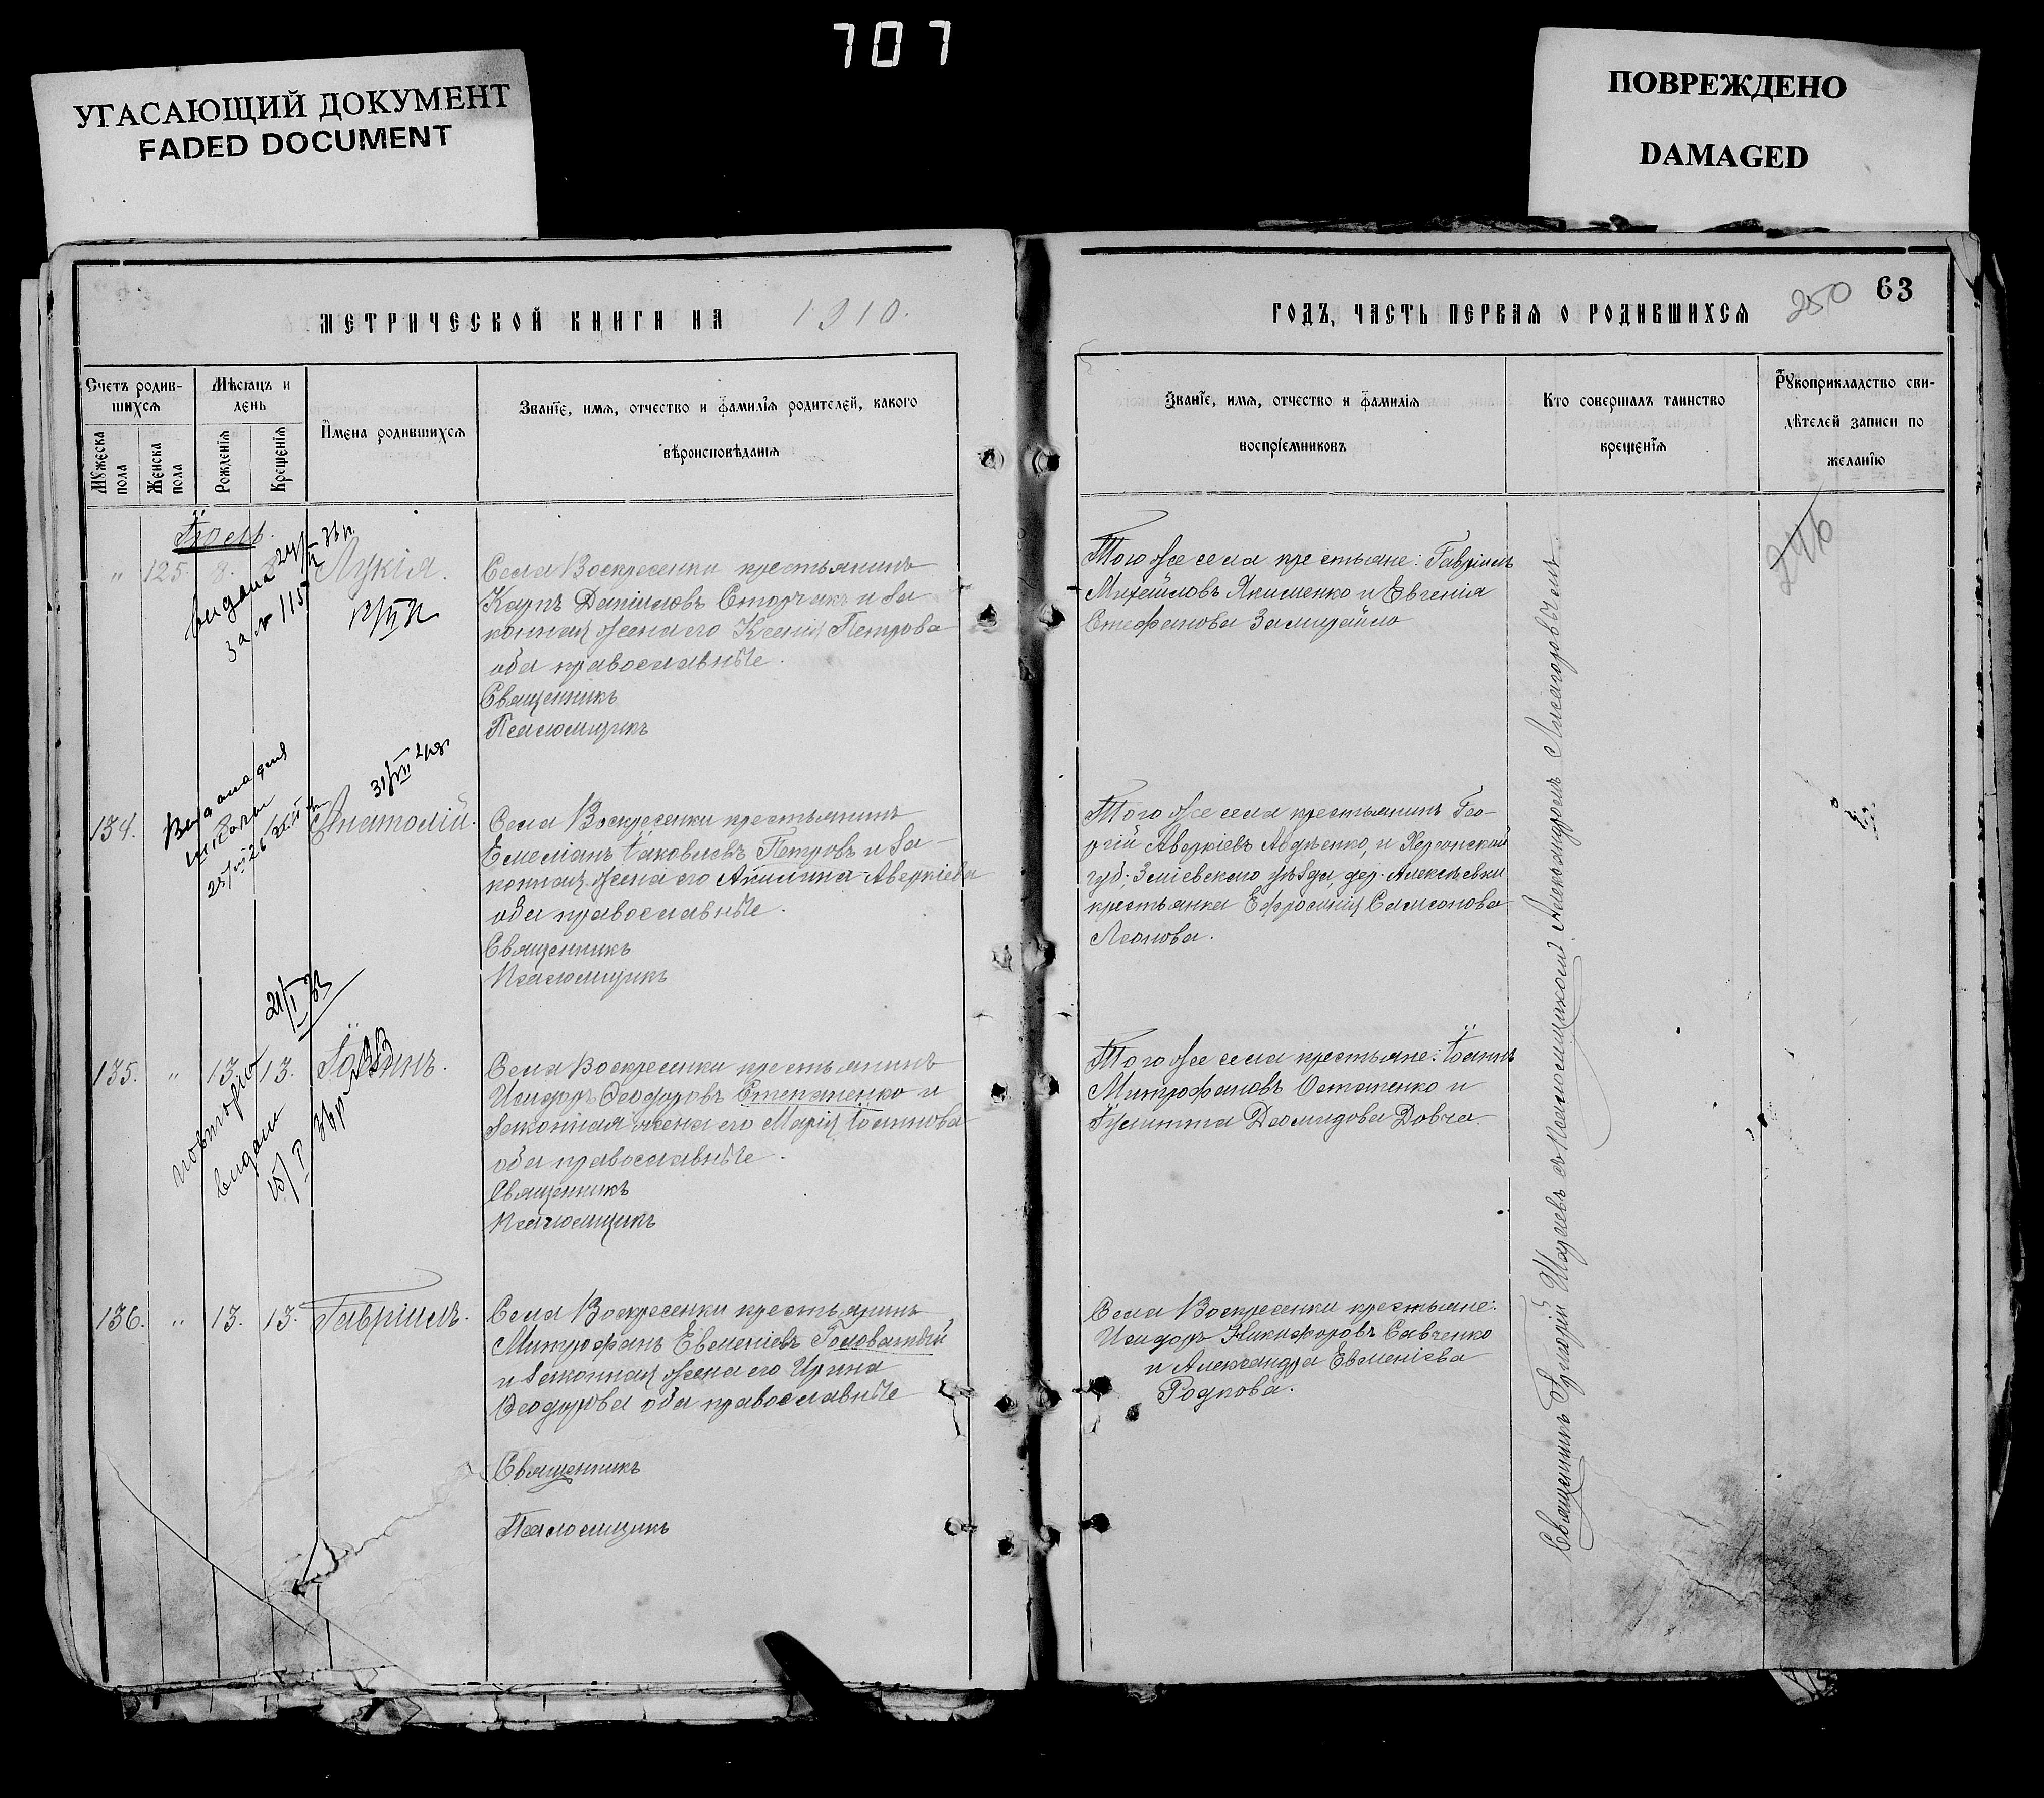 707
УГАСАЮЩИЙ ДОКУМЕНТ
FADED DOCUMENT
ПОВРЕЖДЕНО
DAMAGED
МЕТРИЧЕСКОЙ КНИГИ НА 1910.
Счетъ родив-
шихся
Мужеска
пола
Женска
пола
Мѣсяцъ и
день
Рожденія
Крещенія
Имена родившихся
Званіе, имя, отчество и фамилія родителей, какого
вѣроисповѣданія
Іюль.
" 125. 8. Лукія.
видана
за № 115
Села Воскресенки крестьянинъ
Карпъ Даниловъ Сторчакъ и за
конная жена его Ксенія Петрова
оба православные.
Священникъ
Псаломщикъ
134. Анатолій.
Видана для
школы
Села Воскресенки крестьянинъ
Емеліанъ Іаковлевъ Петровъ и за-
конная жена его Акилина Аверкіева
оба православные.
Священникъ
Псаломщикъ
135. " 13. 13. Іоаннъ.
21/I 33
повторно
видана
Села Воскресенки крестьянинъ
Исидоръ Ѳеодоровъ Степаненко и
законная жена его Марія Іоаннова
оба православные.
Священникъ
Псаломщикъ
136. " 13. 13. Гавріилъ.
Села Воскресенки крестьянинъ
Митрофанъ Евменіевъ Головатый
и законная жена его Ирина
Ѳеодорова оба православные
Священникъ
Псаломщикъ
ГОДЪ, ЧАСТЬ ПЕРВАЯ О РОДИВШИХСЯ
250
63
Званіе, имя, отчество и фамилія
воспріемниковъ
Кто совершалъ таинство
крещенія
Рукоприкладство сви-
дѣтелей записи по
желанію
Того же села крестьяне: Гавріилъ
Михайловъ Якименко и Евгенія
Стефанова Замидайло
Того же села крестьянинъ Гео-
ргій Аверкіевъ и Херсонской
губ. Зміевскаго уѣзда, дер. Алексѣевки
крестьянка Ефросинія Самсонова
Леонова.
Того же села крестьяне: Іоаннъ
Митрофановъ Остапенко и
Іулитта Діомидова Довга.
Села Воскресенки крестьяне:
Исидоръ Никифоровъ Савченко
и Александра Евменіева
Роднова.
Священникъ Григорій съ Псаломщикомъ Александромъ